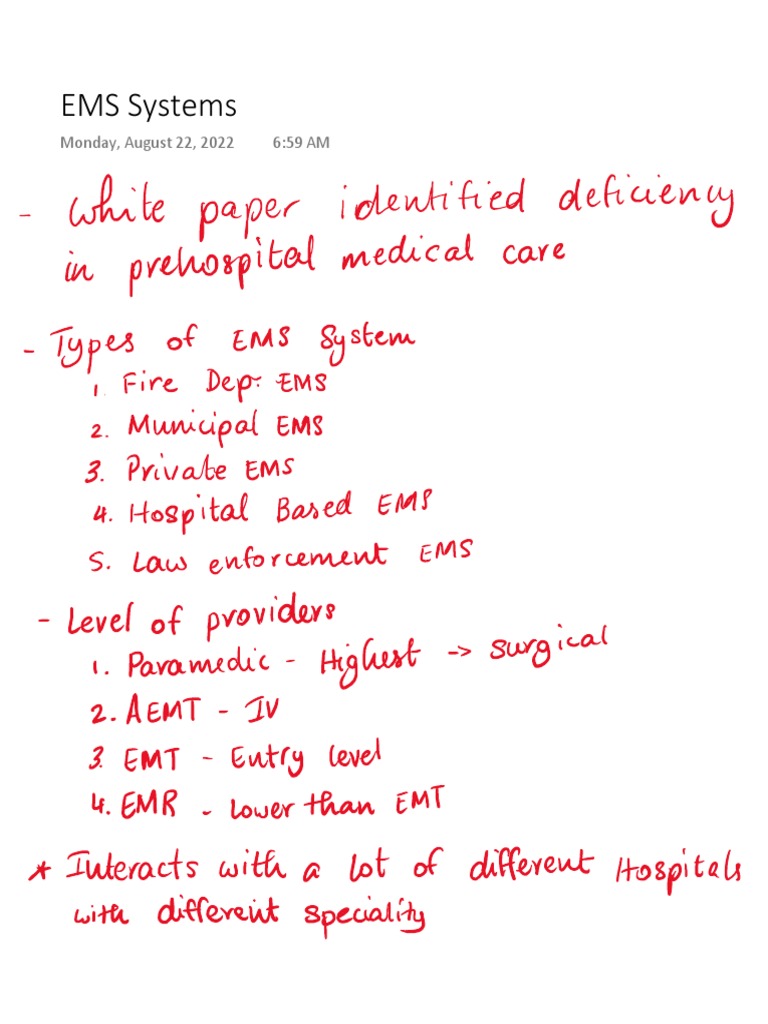 EMS Systems
Monday, August 22, 2022 6:59 AM
- White paper identified deficiency
in prehospital medical care
- Types of EMS System
1. Fire Dep. EMS
2. Municipal EMS
3. Private EMS
4. Hospital Based EMS
5. Law enforcement EMS
- Level of providers
1. Paramedic - Highest -> surgical
2. AEMT - IV
3. EMT - Entry level
4. EMR - lower than EMT
* Interacts with a lot of different Hospitals
with different speciality